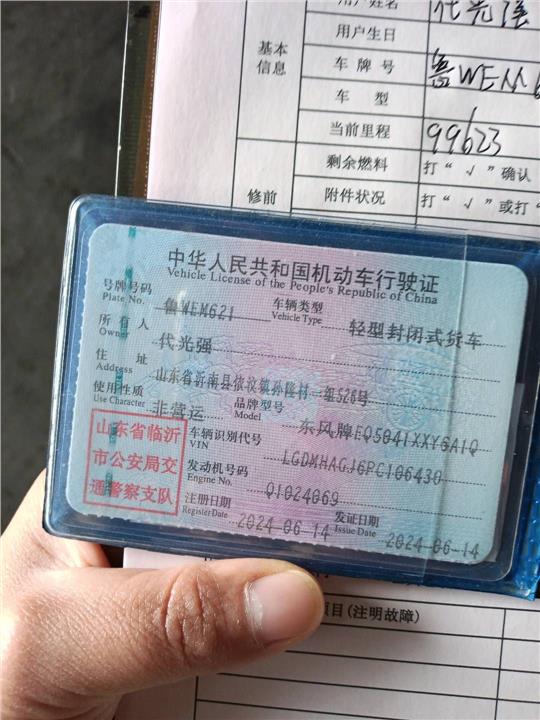 用户姓名 代光强
基本信息
用户生日
车牌号 鲁WEM6
车型
当前里程 99623
剩余燃料 打“√”确认
修前 附件状况 打“√”或打“
中华人民共和国机动车行驶证
Vehicle License of the People's Republic of China
号牌号码 鲁WEM621 车辆类型 轻型封闭式货车
Plate No. Vehicle Type
所有人 代光强
Owner
住址 山东省沂南县依汶镇孙隆村一组526号
Address
使用性质 非营运 品牌型号 东风牌EQ5041XXYGA1Q
Use Character Model
山东省临沂
市公安局交
通警察支队
车辆识别代号 LGDMHAGJ6PC106430
VIN
发动机号码 Q1024069
Engine No.
注册日期 2024-06-14 发证日期 2024-06-14
Register Date Issue Date
项目(注明故障)